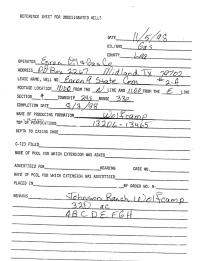 REFERENCE SHEET FOR UNDESIGNATED WELLS
DATE 11/5/98
OIL/GAS Gas
COUNTY Lea
OPERATOR Enron Oil & Gas Co
ADDRESS PO Box 2267 Midland TX 79702
LEASE NAME, WELL NO.
FOOTAGE LOCATION FROM THE N LINE AND FROM THE E LINE
SECTION TOWNSHIP 24S RANGE 33E
COMPLETION DATE
NAME OF PRODUCING FORMATION Wolfcamp
TOP OF PERFORATIONS 13206-13465
DEPTH TO CASING SHOE
C-123 FILED
NAME OF POOL FOR WHICH EXTENSION WAS ASKED
ADVERTISED FOR HEARING CASE NO.
NAME OF POOL FOR WHICH EXTENSION WAS ADVERTISED
PLACED IN BY ORDER NO. R-
REMARKS Johnson Ranch Wolfcamp
320 ac
A B C D E F G H